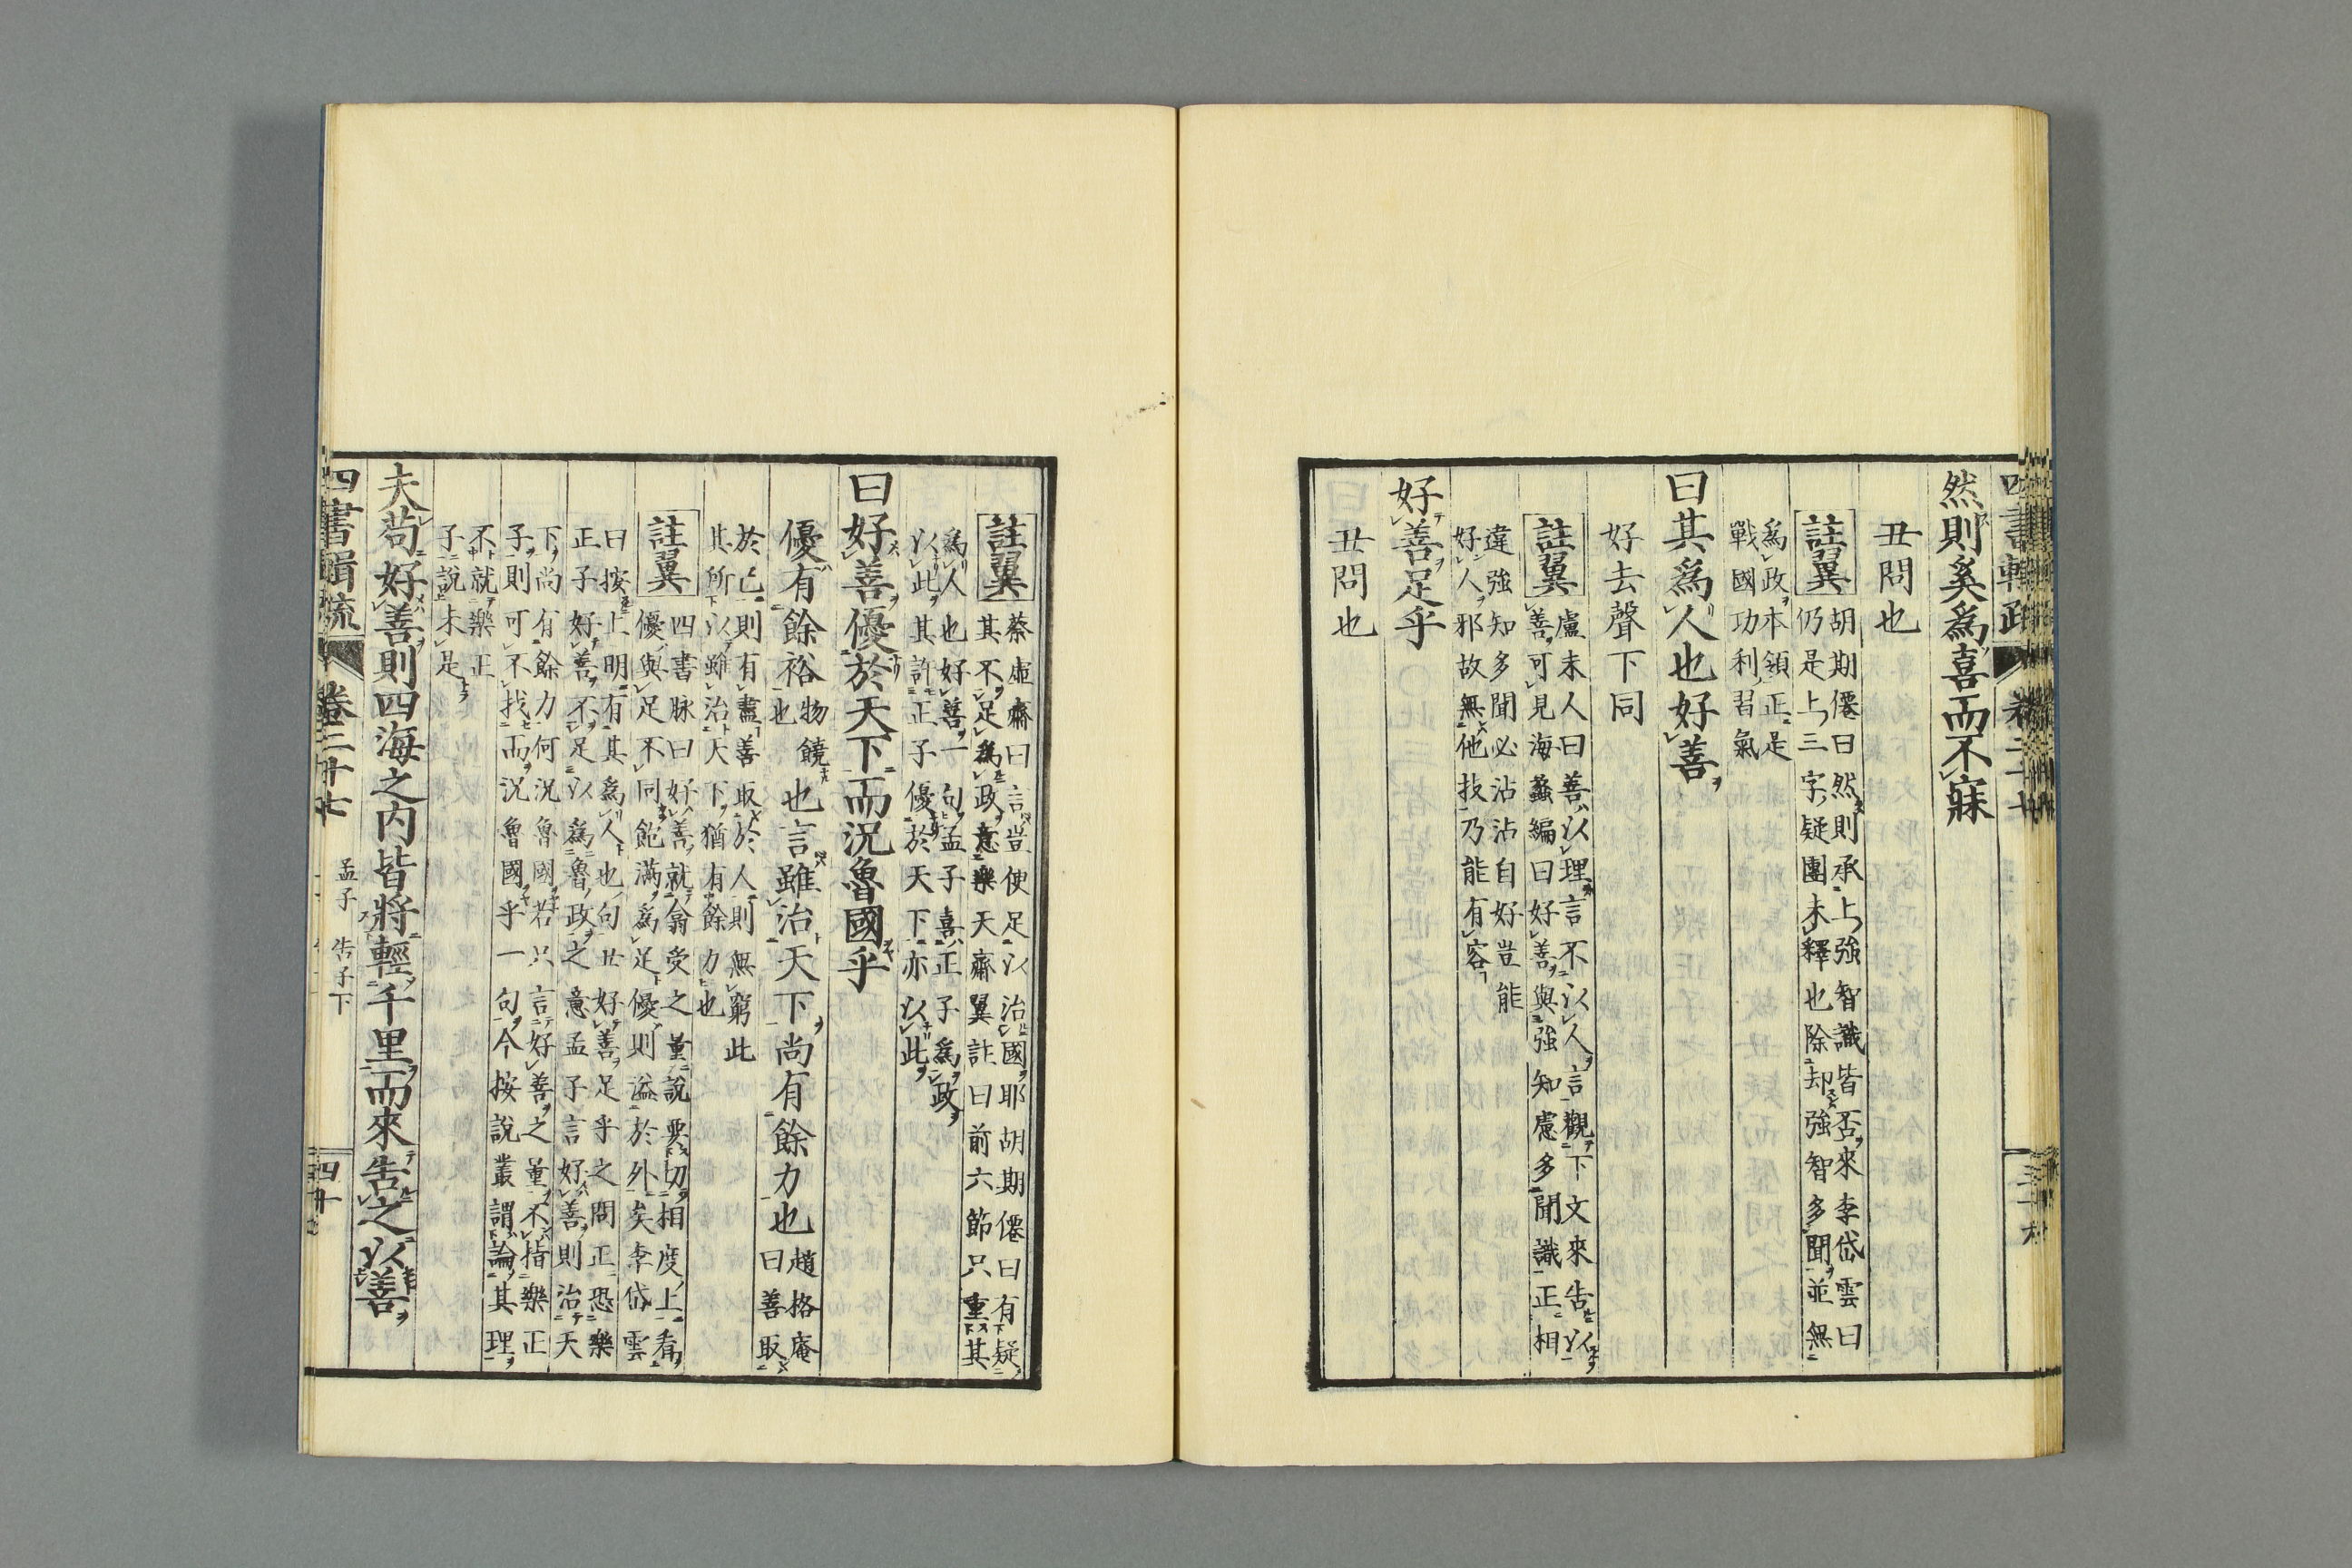 然則奚爲喜而不寐
丑問也
註翼
胡期僊曰然則承上強智識皆否來李岱雲曰
仍是上三字疑團未釋也除却強智多聞並無
爲政本領正是
戰國功利習氣
曰其爲人也好善
好去聲下同
註翼
盧未人曰善以理言不以人言觀下文來告以
善可見海蠡編曰好善與強知慮多聞識正相
違強知多聞必沾沾自好豈能
好人邪故無他技乃能有容
好善足乎
丑問也
註翼
蔡虛齋曰言豈使足以治國耶胡期僊曰有疑
其不足爲政意樂天齋翼註曰前六節只重其
爲人也好善一句孟子喜正子爲政
以此其許正子優於天下亦以此
曰好善優於天下而況魯國乎
優有餘裕
物饒
也
也言雖治天下尚有餘力也
趙格庵
曰善取
於己則有盡善取於人則無窮此
其所以雖治天下猶有餘力也
註翼
四書脉曰好善就翕受之量說要切相度上看
優與足不同飽滿爲足優則溢於外矣李岱雲
曰按上明有其爲人也句丑好善足乎之問正恐樂
正子好善不足以爲魯政之意孟子言好善則治天
下尚有餘力何況魯國若只言好善之量不指樂正
子則可不找而況魯國乎一句今按說叢謂論其理
不就樂正
子說未是
夫苟好善則四海之內皆將輕千里而來告之以善
四書輯疏
卷二十七
孟子 告子下
四十